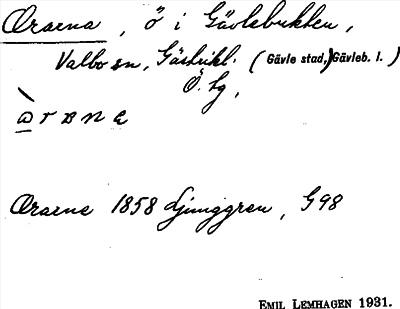 Oraena, ö i Gävlebukten,
Valbo sn, Gästrikl. (Gävle stad, Gävleb. l.)
Ö. tg,
Oraene 1858 Ljunggren, G98
EMIL LEMHAGEN 1931.